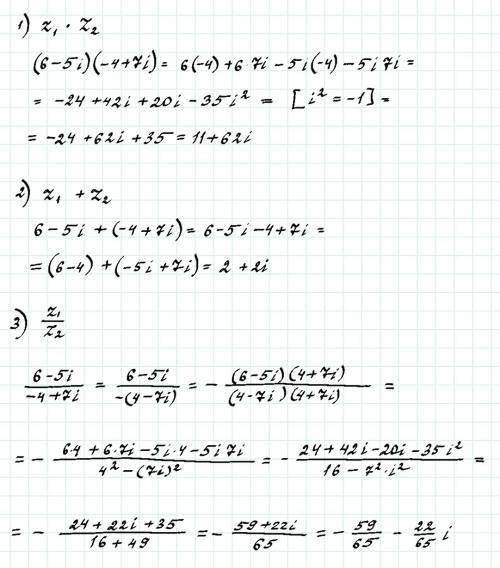 1) z₁ · z₂
(6-5i)(-4+7i) = 6(-4)+6·7i-5i(-4)-5i7i =
= -24+42i+20i-35i² = [i²=-1] =
= -24+62i+35 = 11+62i
2) z₁ + z₂
6-5i+(-4+7i) = 6-5i-4+7i =
= (6-4)+(-5i+7i) = 2+2i
3) z₁/z₂
(6-5i)/(-4+7i) = (6-5i)/(-(4-7i)) = - ((6-5i)(4+7i))/((4-7i)(4+7i)) =
= - (6·4+6·7i-5i·4-5i7i)/(4²-(7i)²) = - (24+42i-20i-35i²)/(16-7²·i²) =
= - (24+22i+35)/(16+49) = - (59+22i)/65 = - 59/65 - 22/65 i